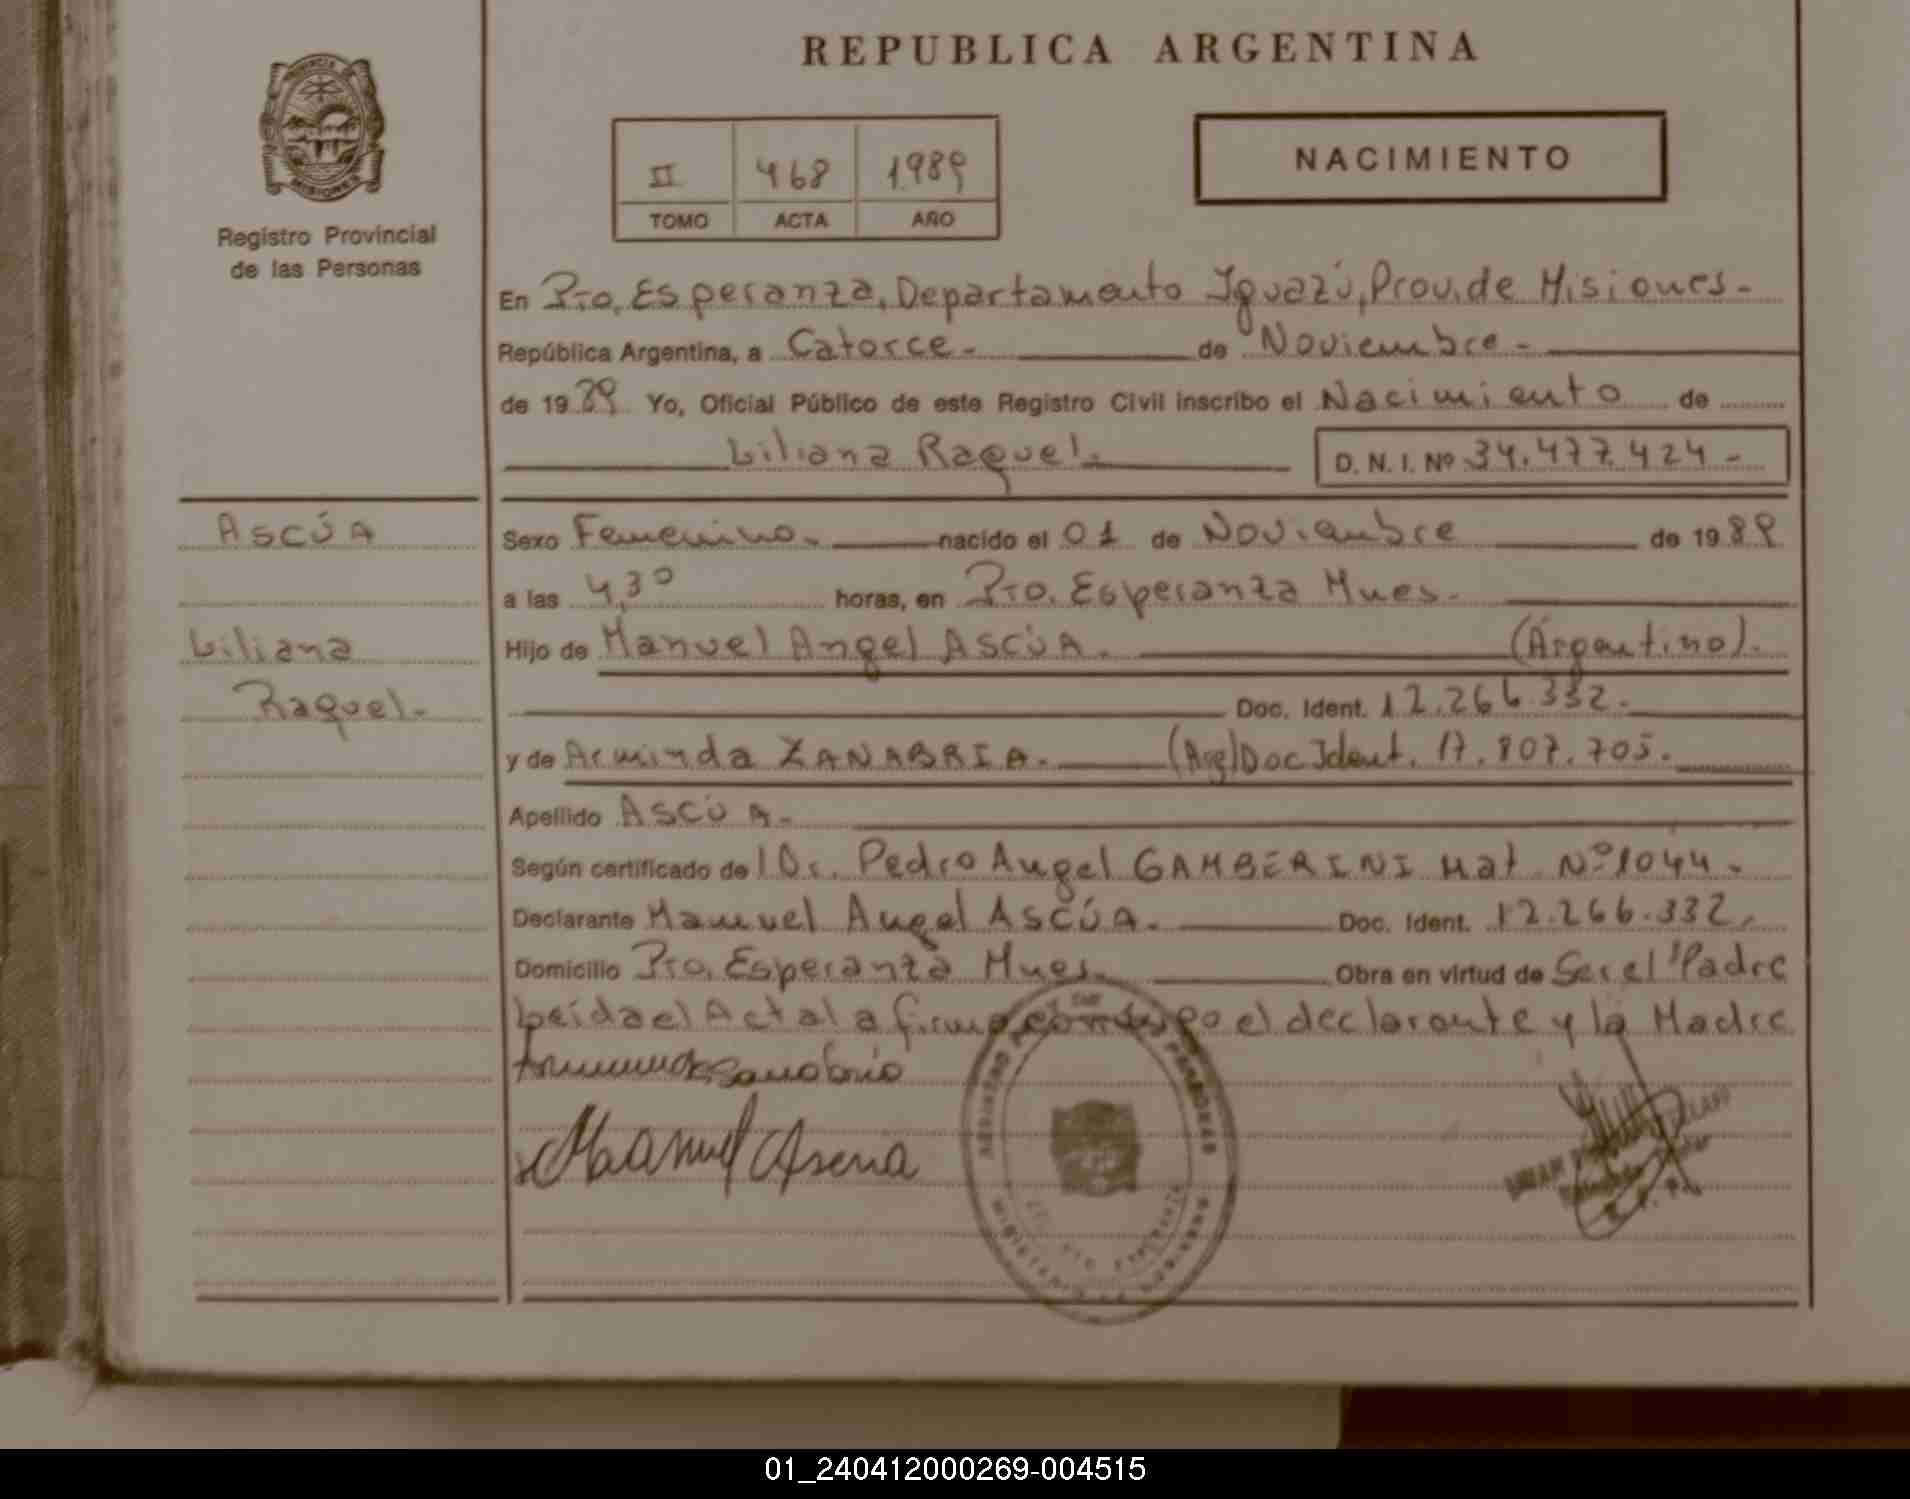 REPUBLICA ARGENTINA
PROVINCIA
MISIONES
Registro Provincial
de las Personas
II 468 1989
TOMO ACTA AÑO
NACIMIENTO
En Pto. Esperanza, Departamento Iguazú, Prov. de Misiones-
República Argentina, a Catorce- de Noviembre-
de 1989 Yo, Oficial Público de este Registro Civil inscribo el Nacimiento de
Liliana Raquel.- D. N. I. Nº 34.477.424-
ASCÚA
Liliana
Raquel-
Sexo Femenino. nacido el 01 de Noviembre de 1989
a las 4,30 horas, en Pto. Esperanza Mnes.
Hijo de Manuel Angel ASCÚA. (Argentino).
Doc. Ident. 12.266.332.
y de Arminda ZANABRIA. (Arg) Doc Ident. 17.807.705.
Apellido ASCÚA.-
Según certificado del Dr. Pedro Angel GAMBERINI Mat Nº 1044-
Declarante Manuel Angel ASCÚA. Doc. Ident. 12.266.332.
Domicilio Pto. Esperanza Mnes. Obra en virtud de Ser el Padre
Leida el Acta la firma conmigo el declarante y la Madre
Manuel Ascua
01_240412000269-004515